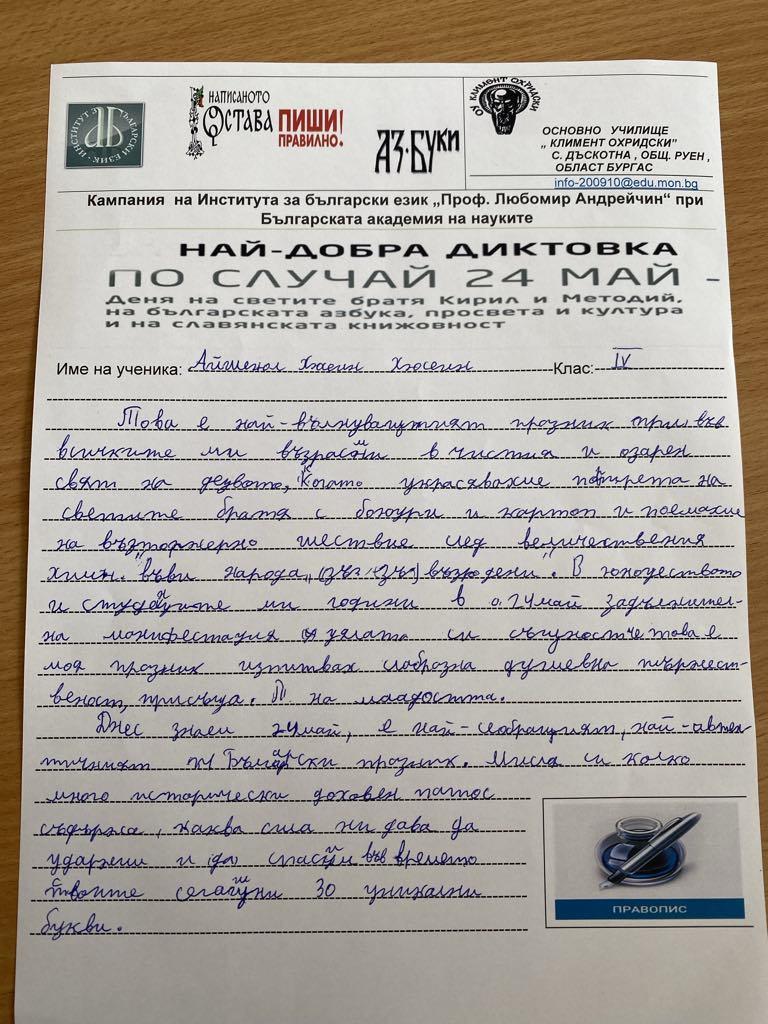 ИНСТИТУТ ЗА БЪЛГАРСКИ ЕЗИК
НАПИСАНОТО
ОСТАВА ПИШИ!
ПРАВИЛНО.
АЗ·БУКИ
ОУ КЛИМЕНТ ОХРИДСКИ
ОСНОВНО УЧИЛИЩЕ
„ КЛИМЕНТ ОХРИДСКИ”
С. ДЪСКОТНА , ОБЩ. РУЕН ,
ОБЛАСТ БУРГАС
info-200910@edu.mon.bg
Кампания на Института за български език „Проф. Любомир Андрейчин“ при
Българската академия на науките
НАЙ-ДОБРА ДИКТОВКА
ПО СЛУЧАЙ 24 МАЙ -
Деня на светите братя Кирил и Методий,
на българската азбука, просвета и култура
и на славянската книжовност
Име на ученика: Айшенол Хюсеин Хюсеин Клас: IV
Това е най-вълнуващият празник при във
всичките ми възрасти в чистия и озарен
свят на дезвото, Когато украсявахме портрета на
светите братя с божури и картоп и поемахме
на възторжерно шествие след величествения
химн. "Върви народа, възродени". В юношеството
и студентите ми години в 0.24май задължител-
на манифестация цялата си същност че това е
моя празник изпитвах своброзна душевна тържест-
веност, присъща. П на младостта.
Днес знаем 24май, е най-съобращият, най-автен
тичният ни Български празник. Мисля си колко
много исторически доховен патос
съдържа, каква сила ни дава да
удържим и да спасим във времето
твоите сегашни 30 уникални
букви.
ПРАВОПИС